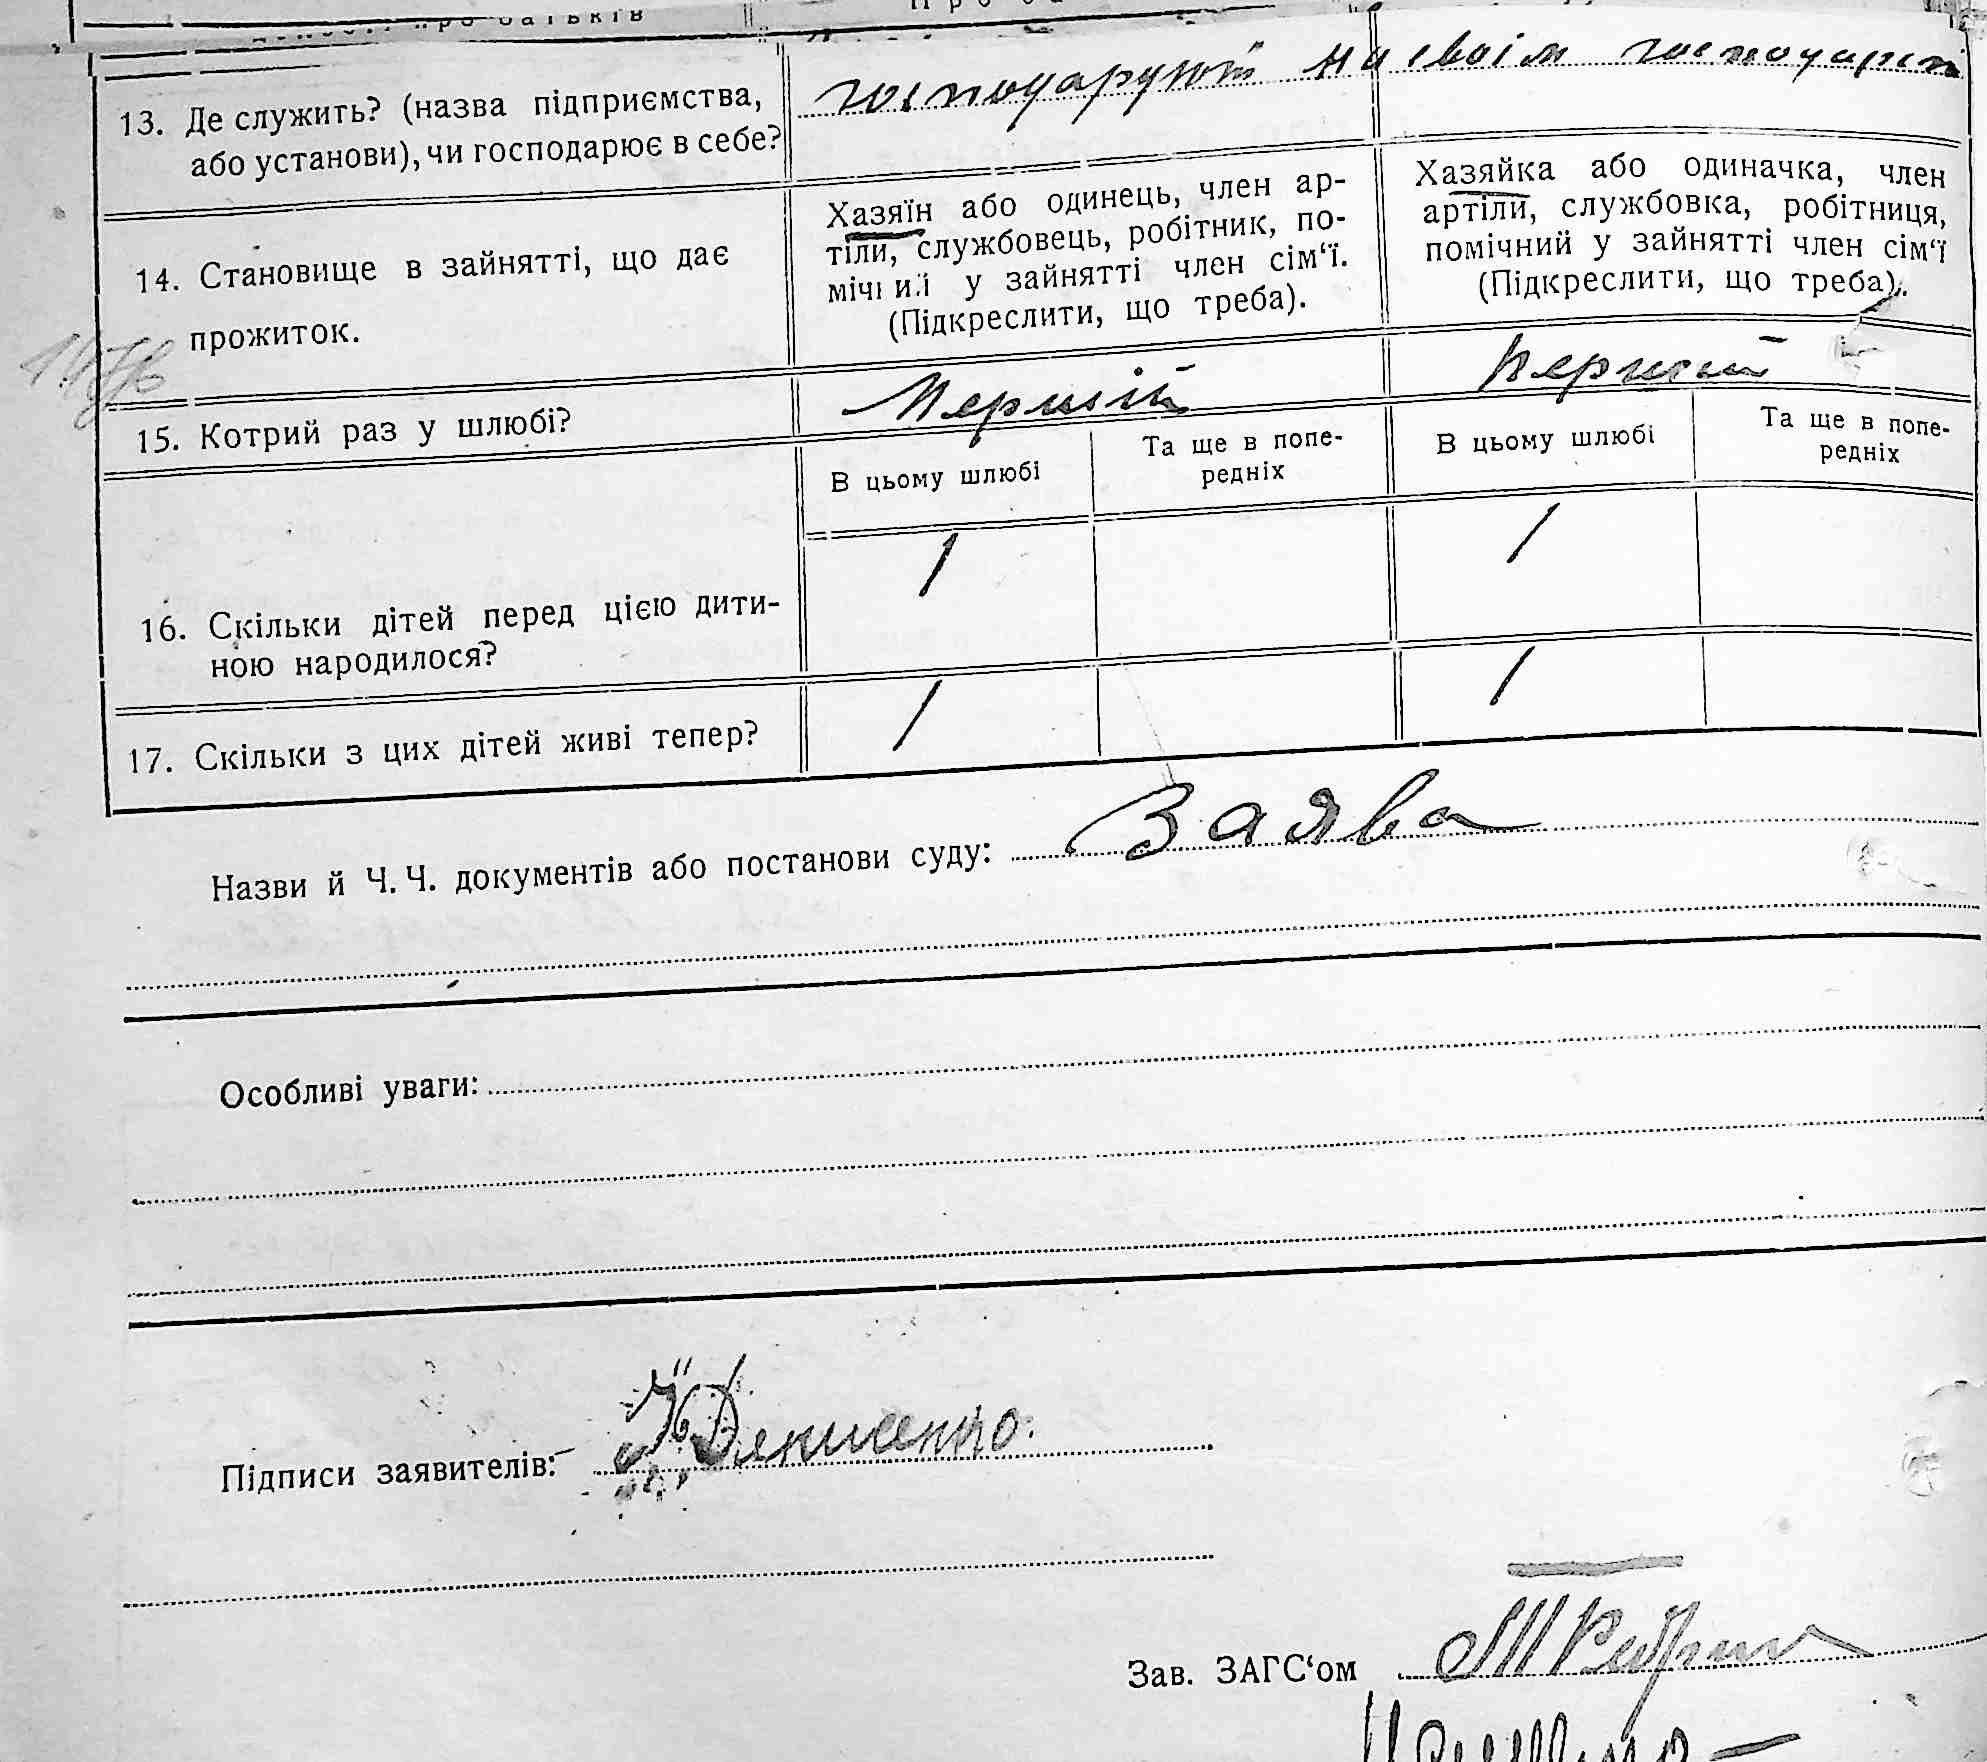 13. Де служить? (назва підприємства,
або установи), чи господарює в себе?
господарують на своїм господарстві
14. Становище в зайнятті, що дає
прожиток.
Хазяїн або одинець, член ар-
тіли, службовець, робітник, по-
мічний у зайнятті член сім‘ї.
(Підкреслити, що треба).
Хазяйка або одиначка, член
артіли, службовка, робітниця,
помічний у зайнятті член сім‘ї
(Підкреслити, що треба).
15. Котрий раз у шлюбі?
Перший
Перший
В цьому шлюбі
Та ще в попе-
редніх
В цьому шлюбі
Та ще в попе-
редніх
16. Скільки дітей перед цією дити-
ною народилося?
1
1
17. Скільки з цих дітей живі тепер?
1
1
Назви й Ч. Ч. документів або постанови суду: Заява
Особливі уваги:
Підписи заявителів:
Зав. ЗАГС‘ом